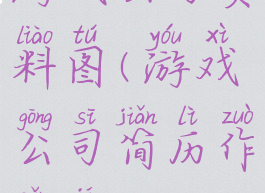 liào tú yóu xì
料图(游戏
gōng sī jiǎn lì zuò
公司简历作